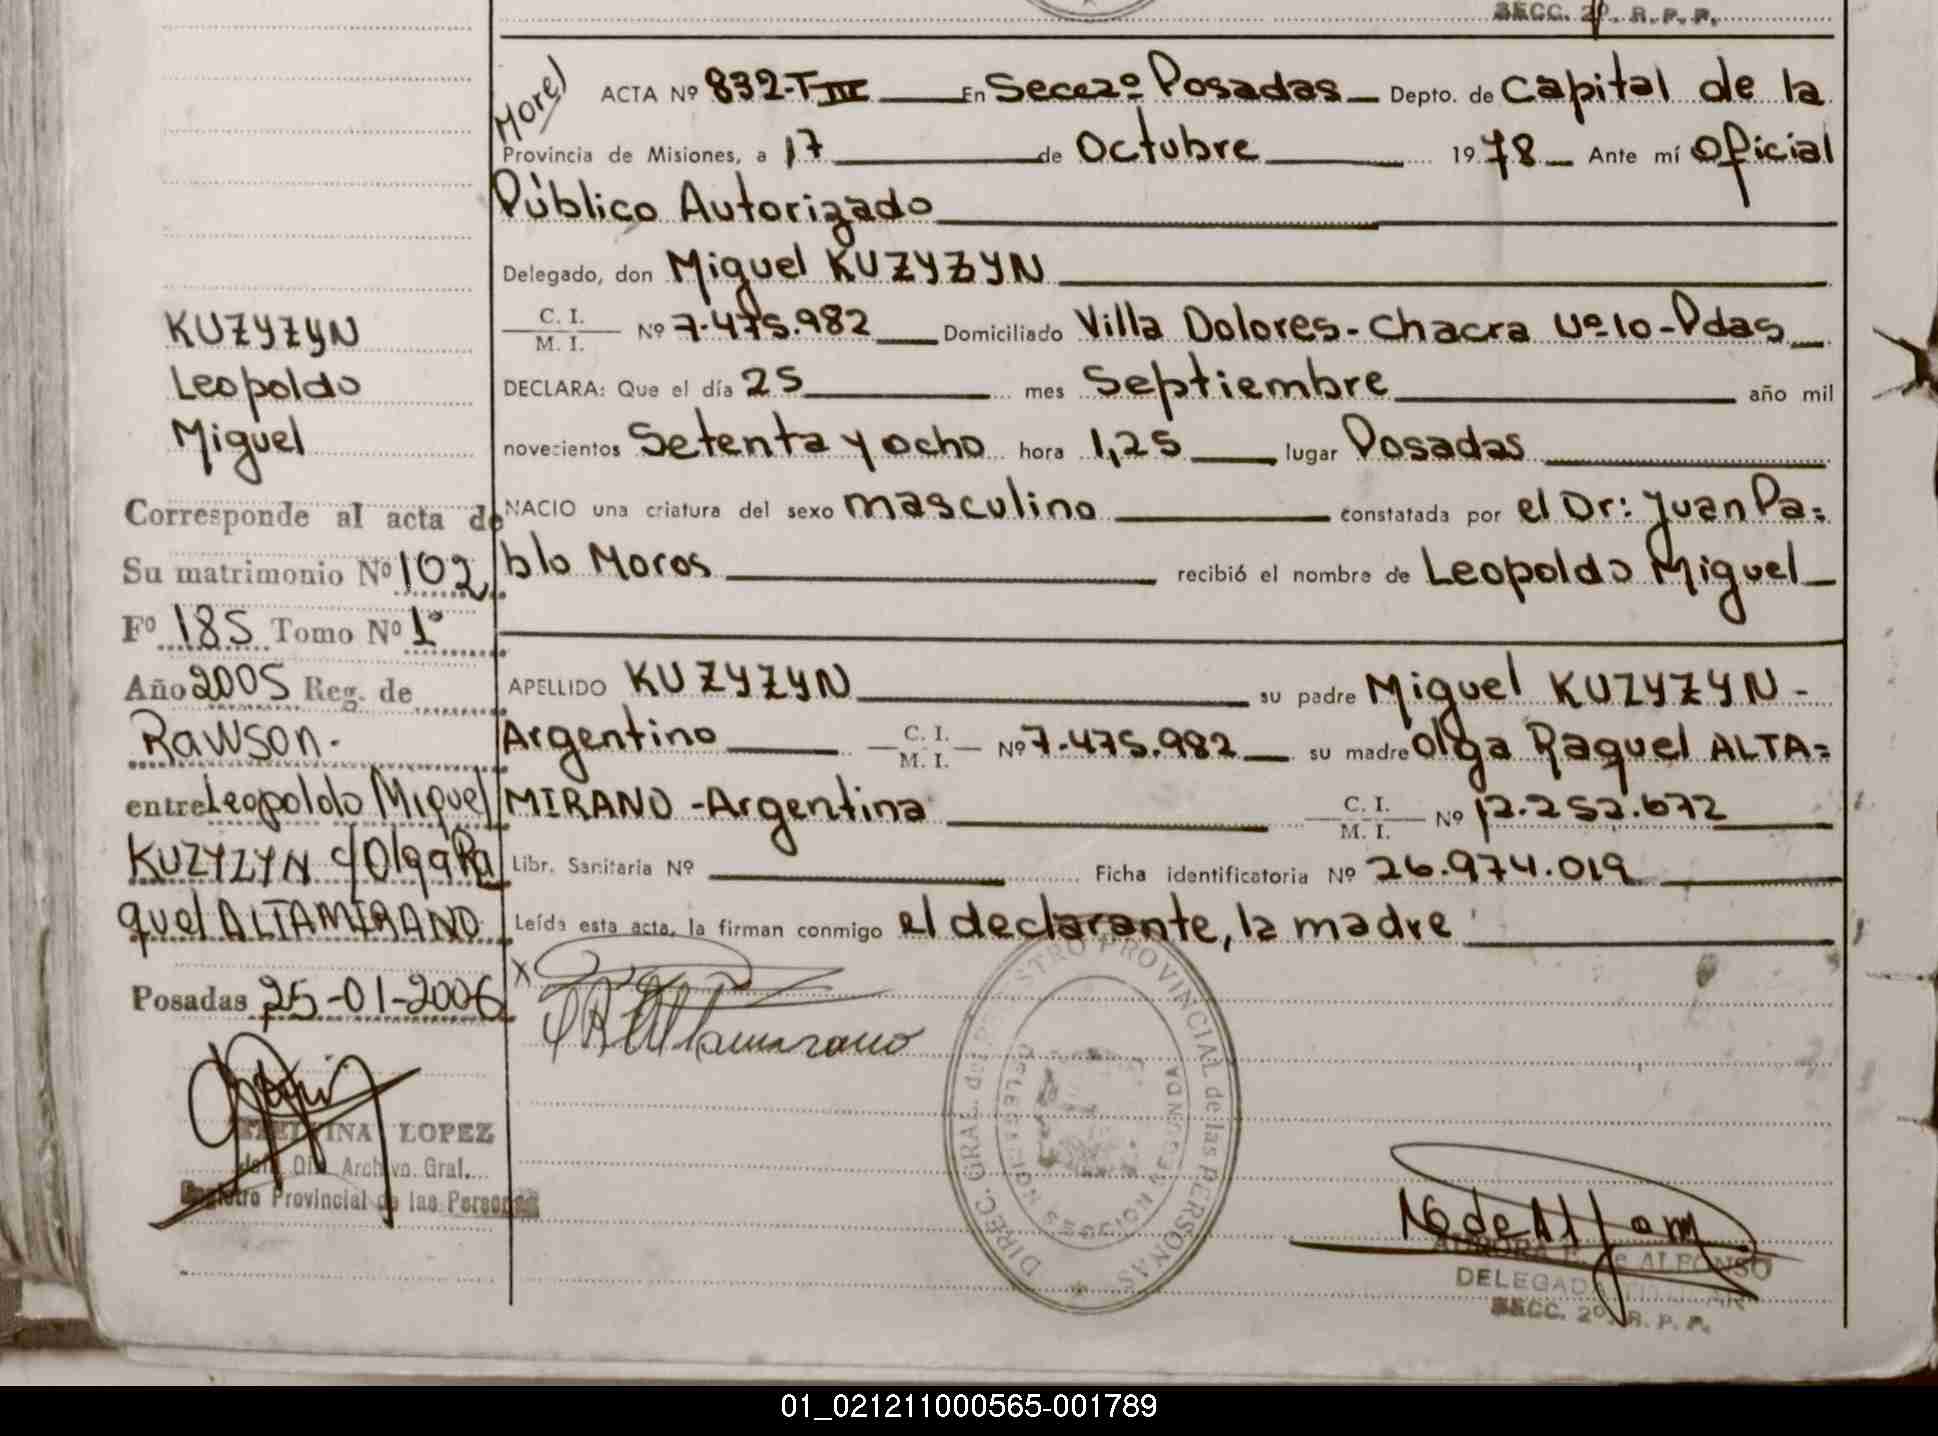 SECC. 2º. R. P. P.
Morel
ACTA Nº 832-T III En Secc 2º Posadas Depto. de Capital de la
Provincia de Misiones, a 17 de Octubre 1978 Ante mí Oficial
Público Autorizado
Delegado, don Miguel KUZYZYN
C. I.
M. I. Nº 7.475.982 Domiciliado Villa Dolores - Chacra Nº 10 - Pdas
DECLARA: Que el día 25 mes Septiembre año mil
novecientos Setenta y ocho hora 1,25 lugar Posadas
NACIO una criatura del sexo masculino constatada por el Dr: Juan Pa=
blo Moros recibió el nombre de Leopoldo Miguel
APELLIDO KUZYZYN su padre Miguel KUZYZYN -
Argentino C. I. M. I. Nº 7.475.982 su madre Olga Raquel ALTA=
MIRANO - Argentina C. I. M. I. Nº 12.252.672
Libr. Sanitaria Nº Ficha identificatoria Nº 26.974.019
Leída esta acta, la firman conmigo el declarante, la madre
X
Altamirano
DIREC. GRAL. del REGISTRO PROVINCIAL de las PERSONAS
DELEGACION SECCION SEGUNDA
AURORA F. de ALFONSO
DELEGADA TITULAR
SECC. 2º. R. P. P.
KUZYZYN
Leopoldo
Miguel
Corresponde al acta de
Su matrimonio Nº 102
Fº 185 Tomo Nº 1º
Año 2005 Reg. de
Rawson.
entre Leopoldo Miguel
KUZYZYN c/ Olga Ra
quel ALTAMIRANO
Posadas 25-01-2006
LOPEZ
Archivo Gral.
Registro Provincial de las Personas
01_021211000565-001789